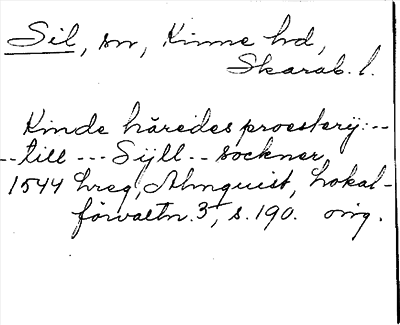 Sil, sn, Kinne hd,
Skarab. l.
Kinde häredes proesterij:--
-- till --- Sijll -- sockner
1544 hreg, Almquist, Lokal-
förvaltn. 3, s. 190. orig.